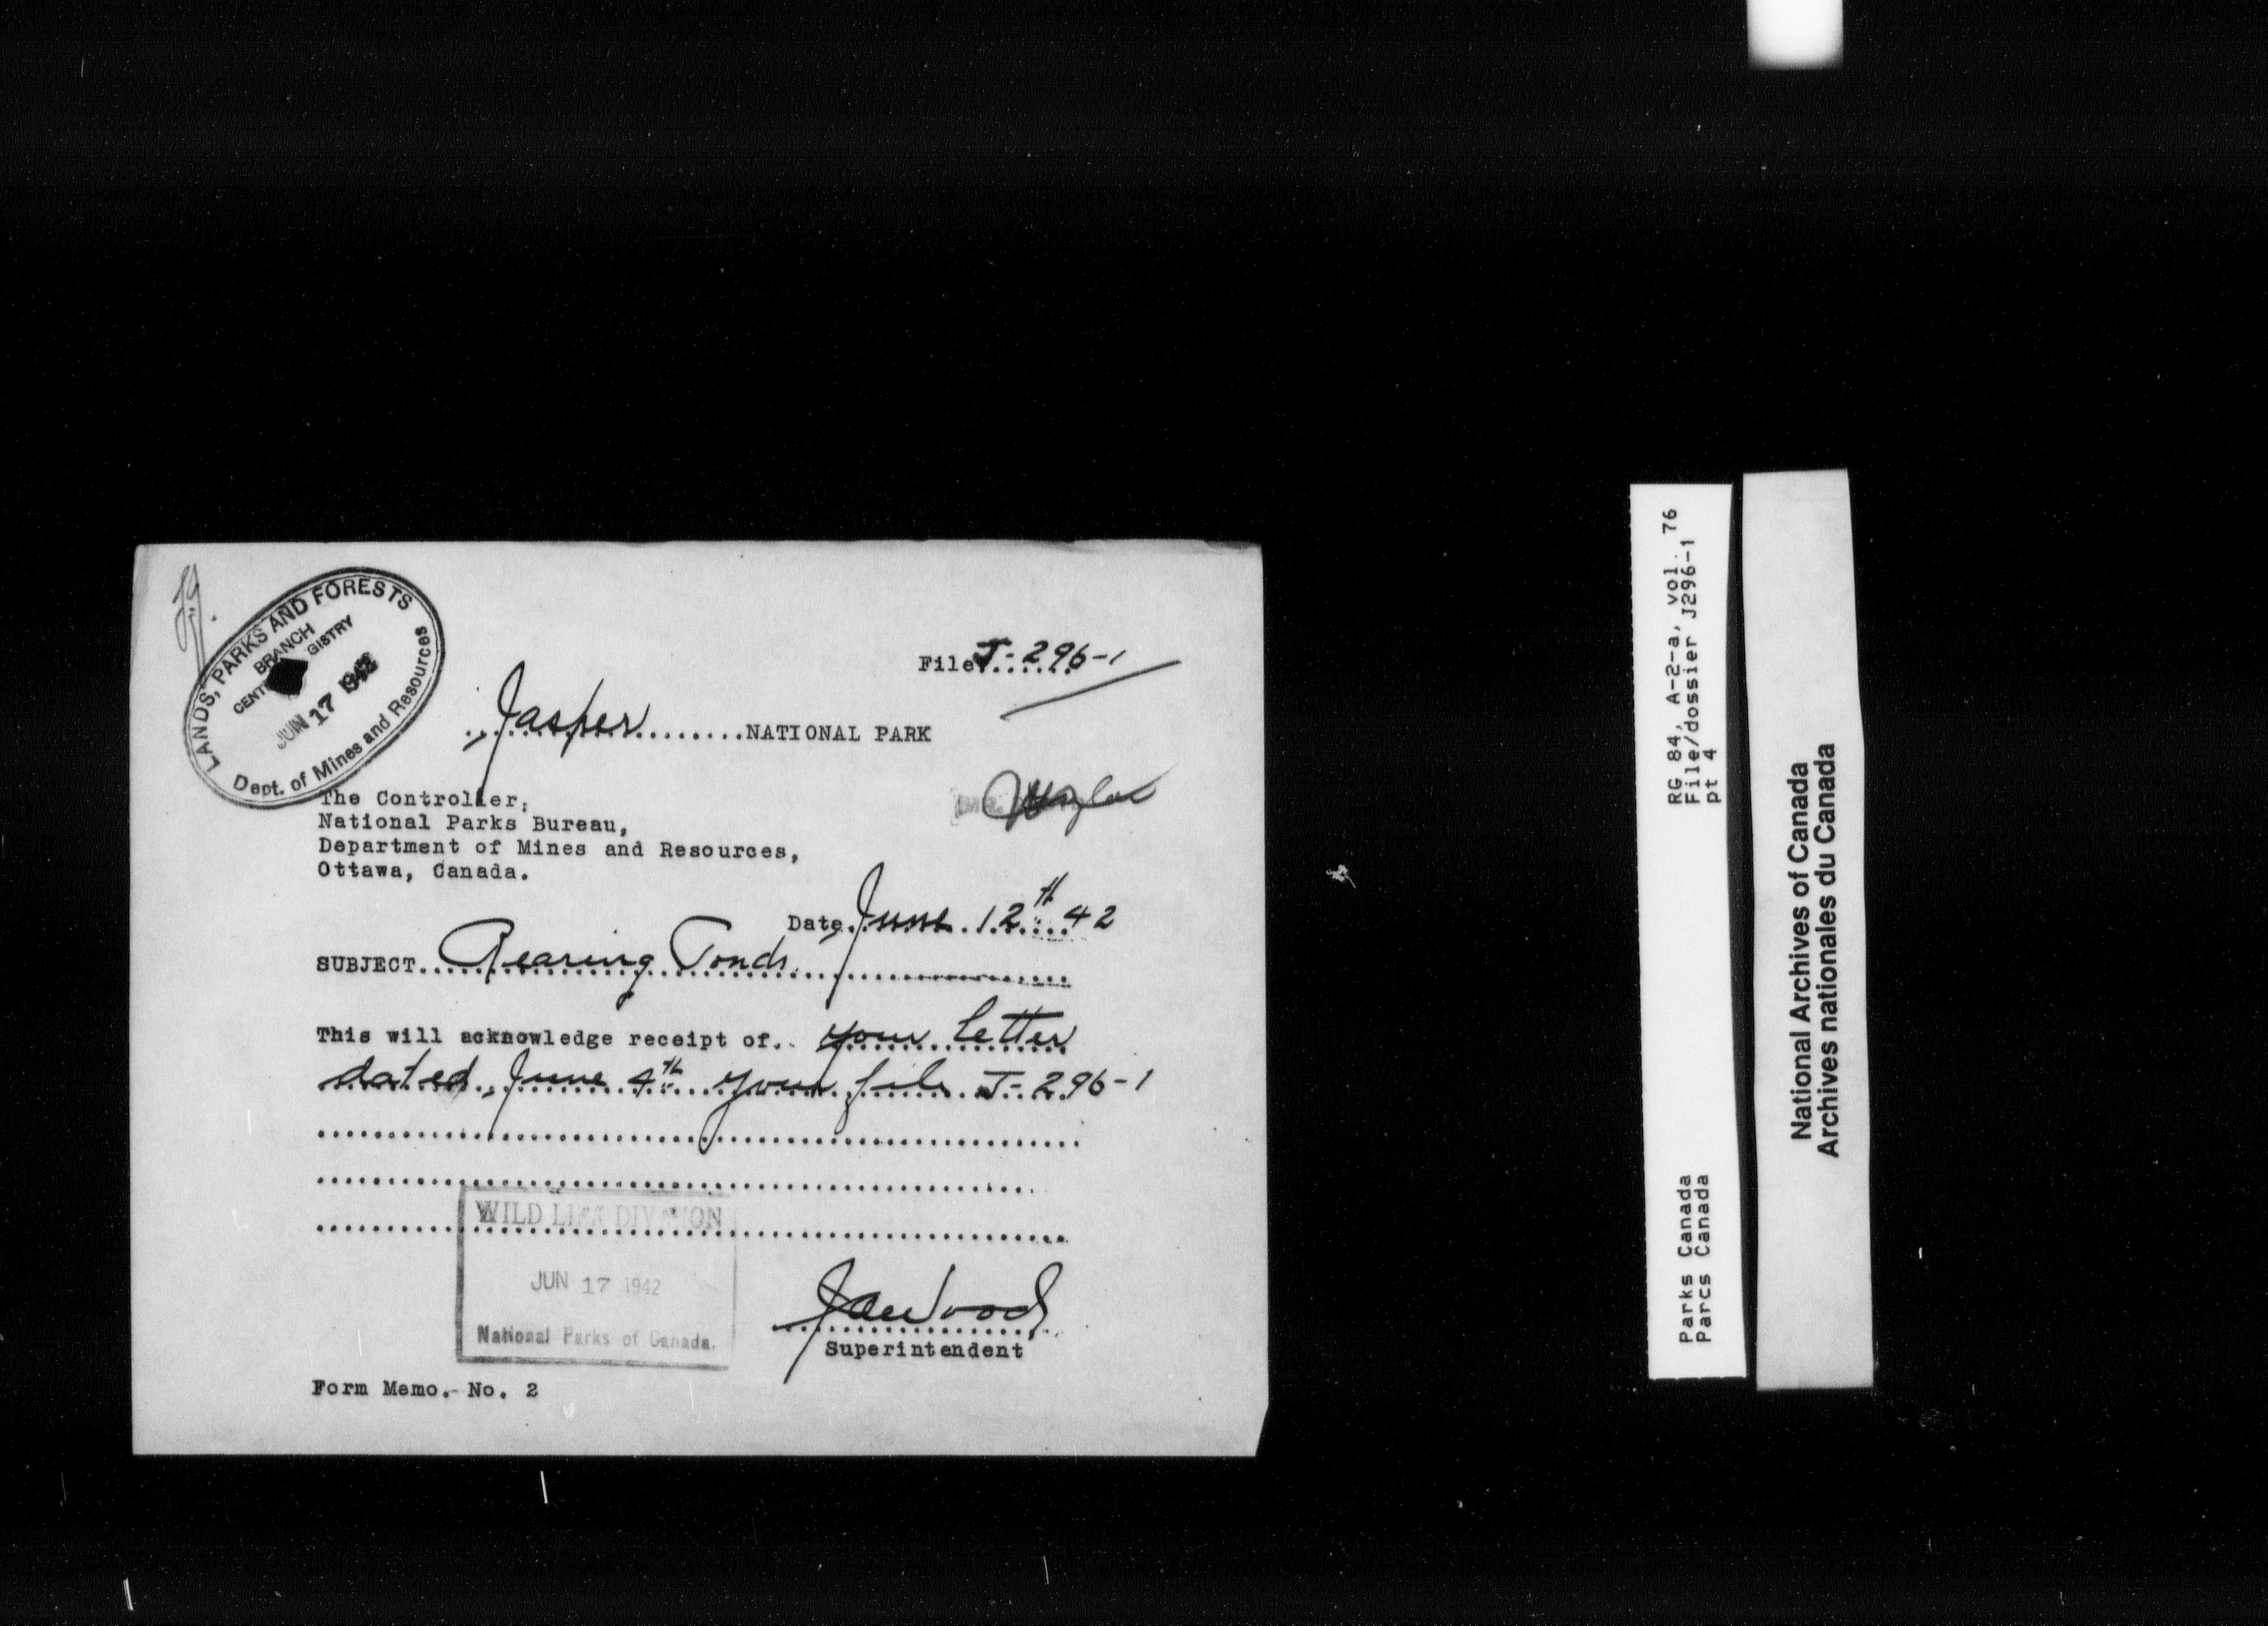 LANDS, PARKS AND FORESTS
BRANCH
JUN 17 1942
Dept. of Mines and Resources
File J-296-1
Jasper NATIONAL PARK
The Controller,
National Parks Bureau,
Department of Mines and Resources,
Ottawa, Canada.
Date June 12th 42
SUBJECT Rearing Ponds
This will acknowledge receipt of your letter
dated June 4th your file J-296-1
WILD LIFE DIVISION
JUN 17 1942
National Parks of Canada.
JaWood
Superintendent
Form Memo.- No. 2
RG 84, A-2-a, vol. 76
File/dossier J296-1
pt 4
Parks Canada
Parcs Canada
National Archives of Canada
Archives nationales du Canada